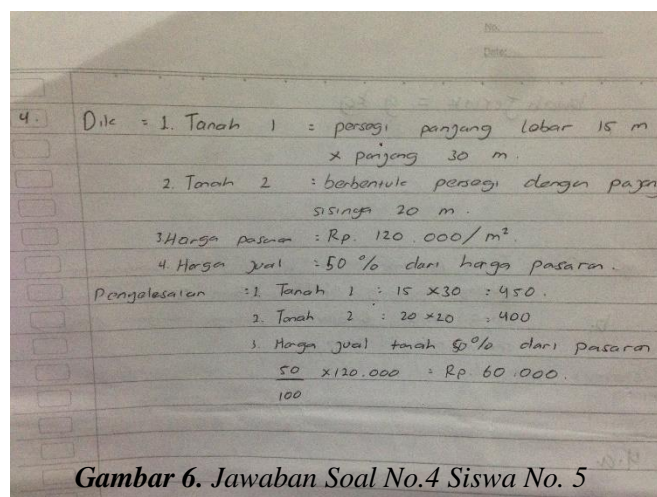 No.
Date:
4. Dik = 1. Tanah 1 : persegi panjang lebar 15 m
x panjang 30 m.
2. Tanah 2 : berbentuk persegi dengan pajan
sisinya 20 m.
3. Harga pasaran : Rp. 120.000/m².
4. Harga jual : 50 % dari harga pasaran.
Penyelesaian : 1. Tanah 1 : 15 x 30 : 450.
2. Tanah 2 : 20 x 20 : 400
3. Harga jual tanah 50% dari pasaran
50 x 120.000 : Rp. 60.000.
100
Gambar 6. Jawaban Soal No.4 Siswa No. 5